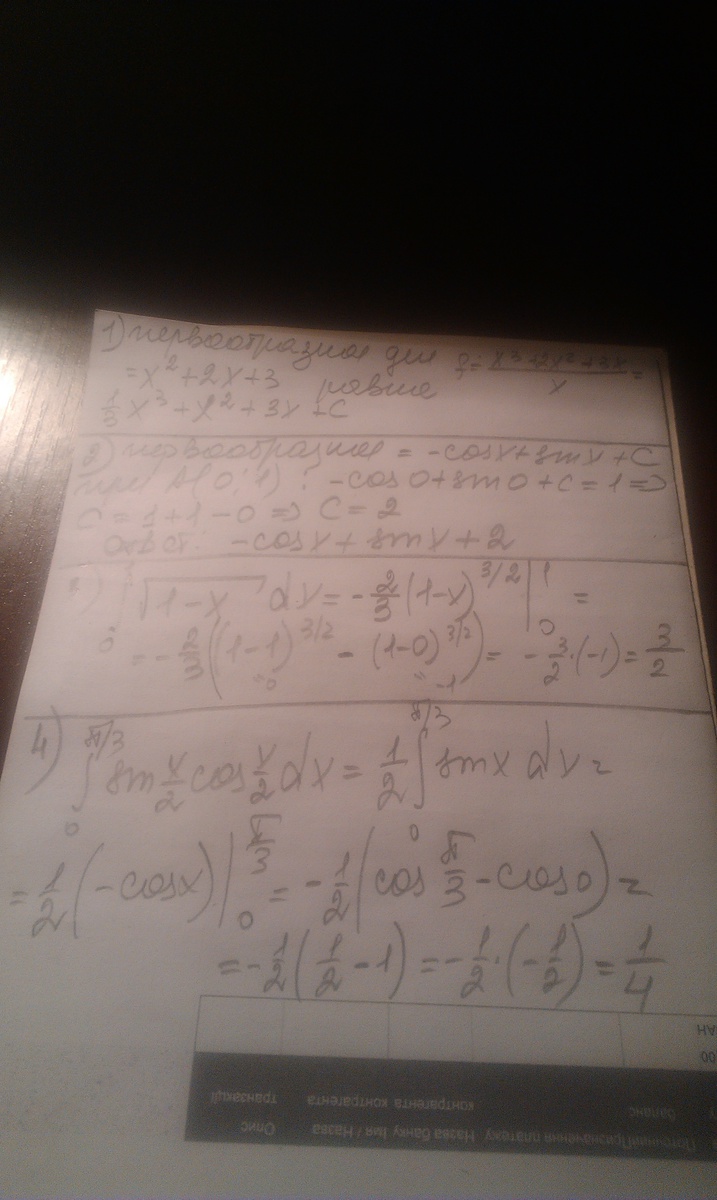 1) первообразная для f = x³+2x²+3x / x =
= x²+2x+3 равна
1/3 x³ + x² + 3x + C
2) первообразная = -cosx + sinx + C
при A(0;1) : -cos0 + sin0 + C = 1 =>
C = 1+1-0 => C = 2
Ответ: -cosx + sinx + 2
∫ √1-x dx = -2/3 (1-x)^3/2 |₀¹ =
= -2/3 ((1-1)^3/2 - (1-0)^3/2) = -3/2·(-1) = 3/2
"0 "-1
4) ∫₀^π/3 sin x/2 cos x/2 dx = 1/2 ∫₀^π/3 sinx dx =
= 1/2 (-cosx) |₀^π/3 = -1/2 (cos π/3 - cos0) =
= -1/2 (1/2 - 1) = -1/2·(-1/2) = 1/4
Призначення платежу Назва банку Імя / Назва Опис
баланс контрагента контрагента транзакції
00
АН